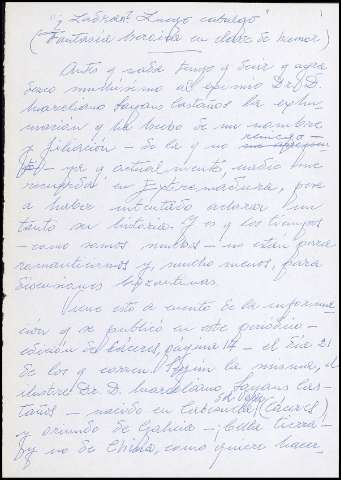 "¡Ladran? Luego cabalgo"
(Fantasía borcina en clave de humor)
Antes y nada tengo y decir y agra
dezco muchísimo al eximio Dr. D.
Marceliano Sayans Castaños la exhu-
mación y ha hecho de mi nombre
y filiación - de la y no reniego -
ya y actualmente, nadie me
recuerda en Extremadura, pese
a haber intentado aclarar un
tanto su historia. Y es y los tiempos
- como somos muchos - no están para
romanticismos y, mucho menos, para
discusiones bizantinas.
Viene esto a cuento de la informa-
ción y se publicó en este periódico -
edición de Cáceres, página 14 - el día 21
de los y corren. Según la misma, el
ilustre Dr. D. Marceliano Sayans Cas-
taños - nacido en Cabezuela del Valle (Cáceres)
y oriundo de Galicia - ¡bella tierra!
y no de China, como quiere hacer-